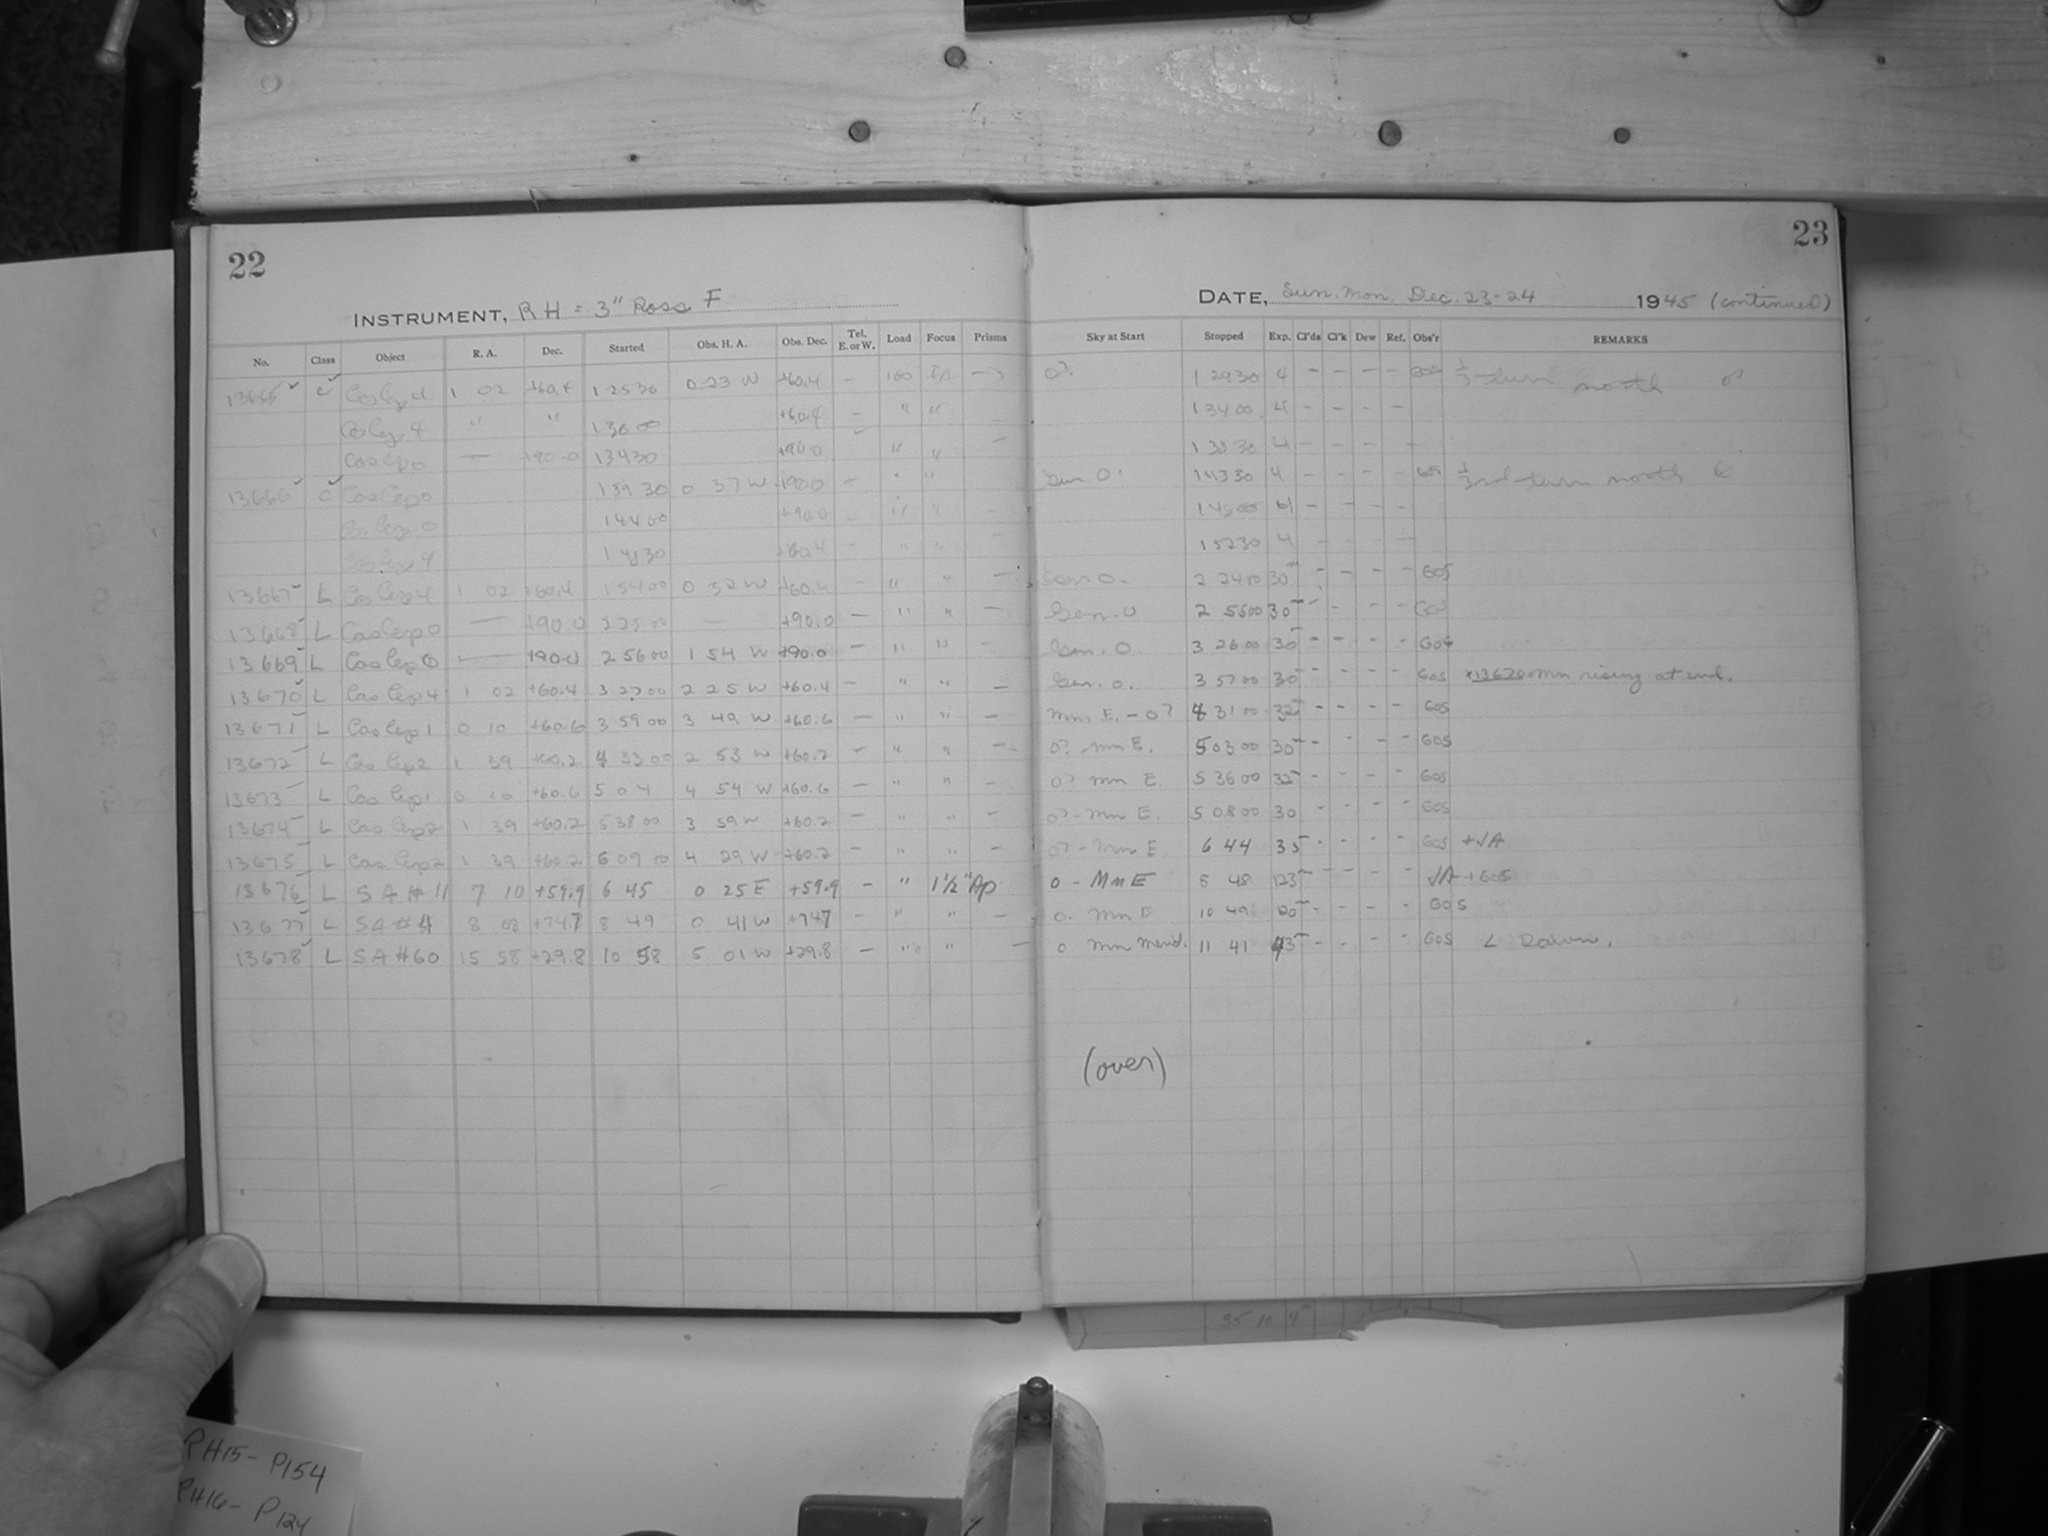 22
23
INSTRUMENT, RH = 3" Ross F
DATE, Sun. Mon. Dec. 23-24 1945 (continued)
No. Class Object R. A. Dec. Started Obs. H. A. Obs. Dec. Tel. E. or W. Load Focus Prisms Sky at Start Stopped Exp. Cl'ds Cl'k Dew Ref. Obs'r REMARKS
13665 C Cas Cep 4 1 02 +60.4 1 25 30 0 23 W +60.4 — 160 — 0? 1 29 30 4 – – – – GOS 1/3 turn north
Cas Cep 4 " " 1 30 00 +60.4 — " " 1 34 00 4 – – – –
Cas Cep 0 — +90.0 1 34 30 +90.0 " " – 1 38 30 4 – – – –
13666 C Cas Cep 0 1 39 30 0 37 W +90.0 — " " 1 43 30 4 – – – – GOS 1/3rd turn north
Cas Cep 0 1 44 00 +90.0 — " " –
Cas Cep 4 +60.4 – " " – 1 52 30 4 – – – –
13667 L Cas Cep 4 1 02 +60.4 1 54 00 0 52 W +60.4 — " " — 2 24 00 30 – – – – GOS
13668 L Cas Cep 0 — +90.0 2 25 00 — +90.0 — " " — Gen. 0 2 55 00 30 – – – – GOS
13669 L Cas Cep 0 — +90.0 2 56 00 1 54 W +90.0 — " " — Gen. 0. 3 26 00 30 – – – – GOS
13670 L Cas Cep 4 1 02 +60.4 3 27 00 2 25 W +60.4 — " " — Gen. 0. 3 57 00 30 – – – – GOS *13670 mn rising at end.
13671 L Cas Cep 1 0 10 +60.6 3 59 00 3 49 W +60.6 — " " — mn. E. – 0? 4 31 00 32 – – – – GOS
13672 L Cas Cep 2 1 39 +60.2 4 33 00 2 53 W +60.2 – " " — 0? mn E. 5 03 00 30 – – – – GOS
13673 L Cas Cep 1 0 10 +60.6 5 04 4 54 W +60.6 — " " – 0? mn E 5 36 00 32 – – – – GOS
13674 L Cas Cep 2 1 39 +60.2 5 38 00 3 59 W +60.2 — " " – 0? – mn E. 5 08 00 30 – – – – GOS
13675 L Cas Cep 2 1 39 +60.2 6 09 00 4 29 W +60.2 — " " – 0? – mn E. 6 44 35 – – – – GOS + JA
13676 L SA #11 7 10 +59.9 6 45 0 25 E +59.9 – " 1 1/2" Ap 0 – Mn E 8 48 123 – – – – JA + GOS
13677 L SA #4 8 08 +74.7 8 49 0 41 W +747 – " " – 0. mn E 10 49 120 – – – – GOS
13678 L SA #60 15 58 +29.8 10 58 5 01 W +29.8 — " " — 0 mn merid. 11 41 43 – – – – GOS L Dawn.
(over)
35 10 7
RH15 – P154
RH16 – P124